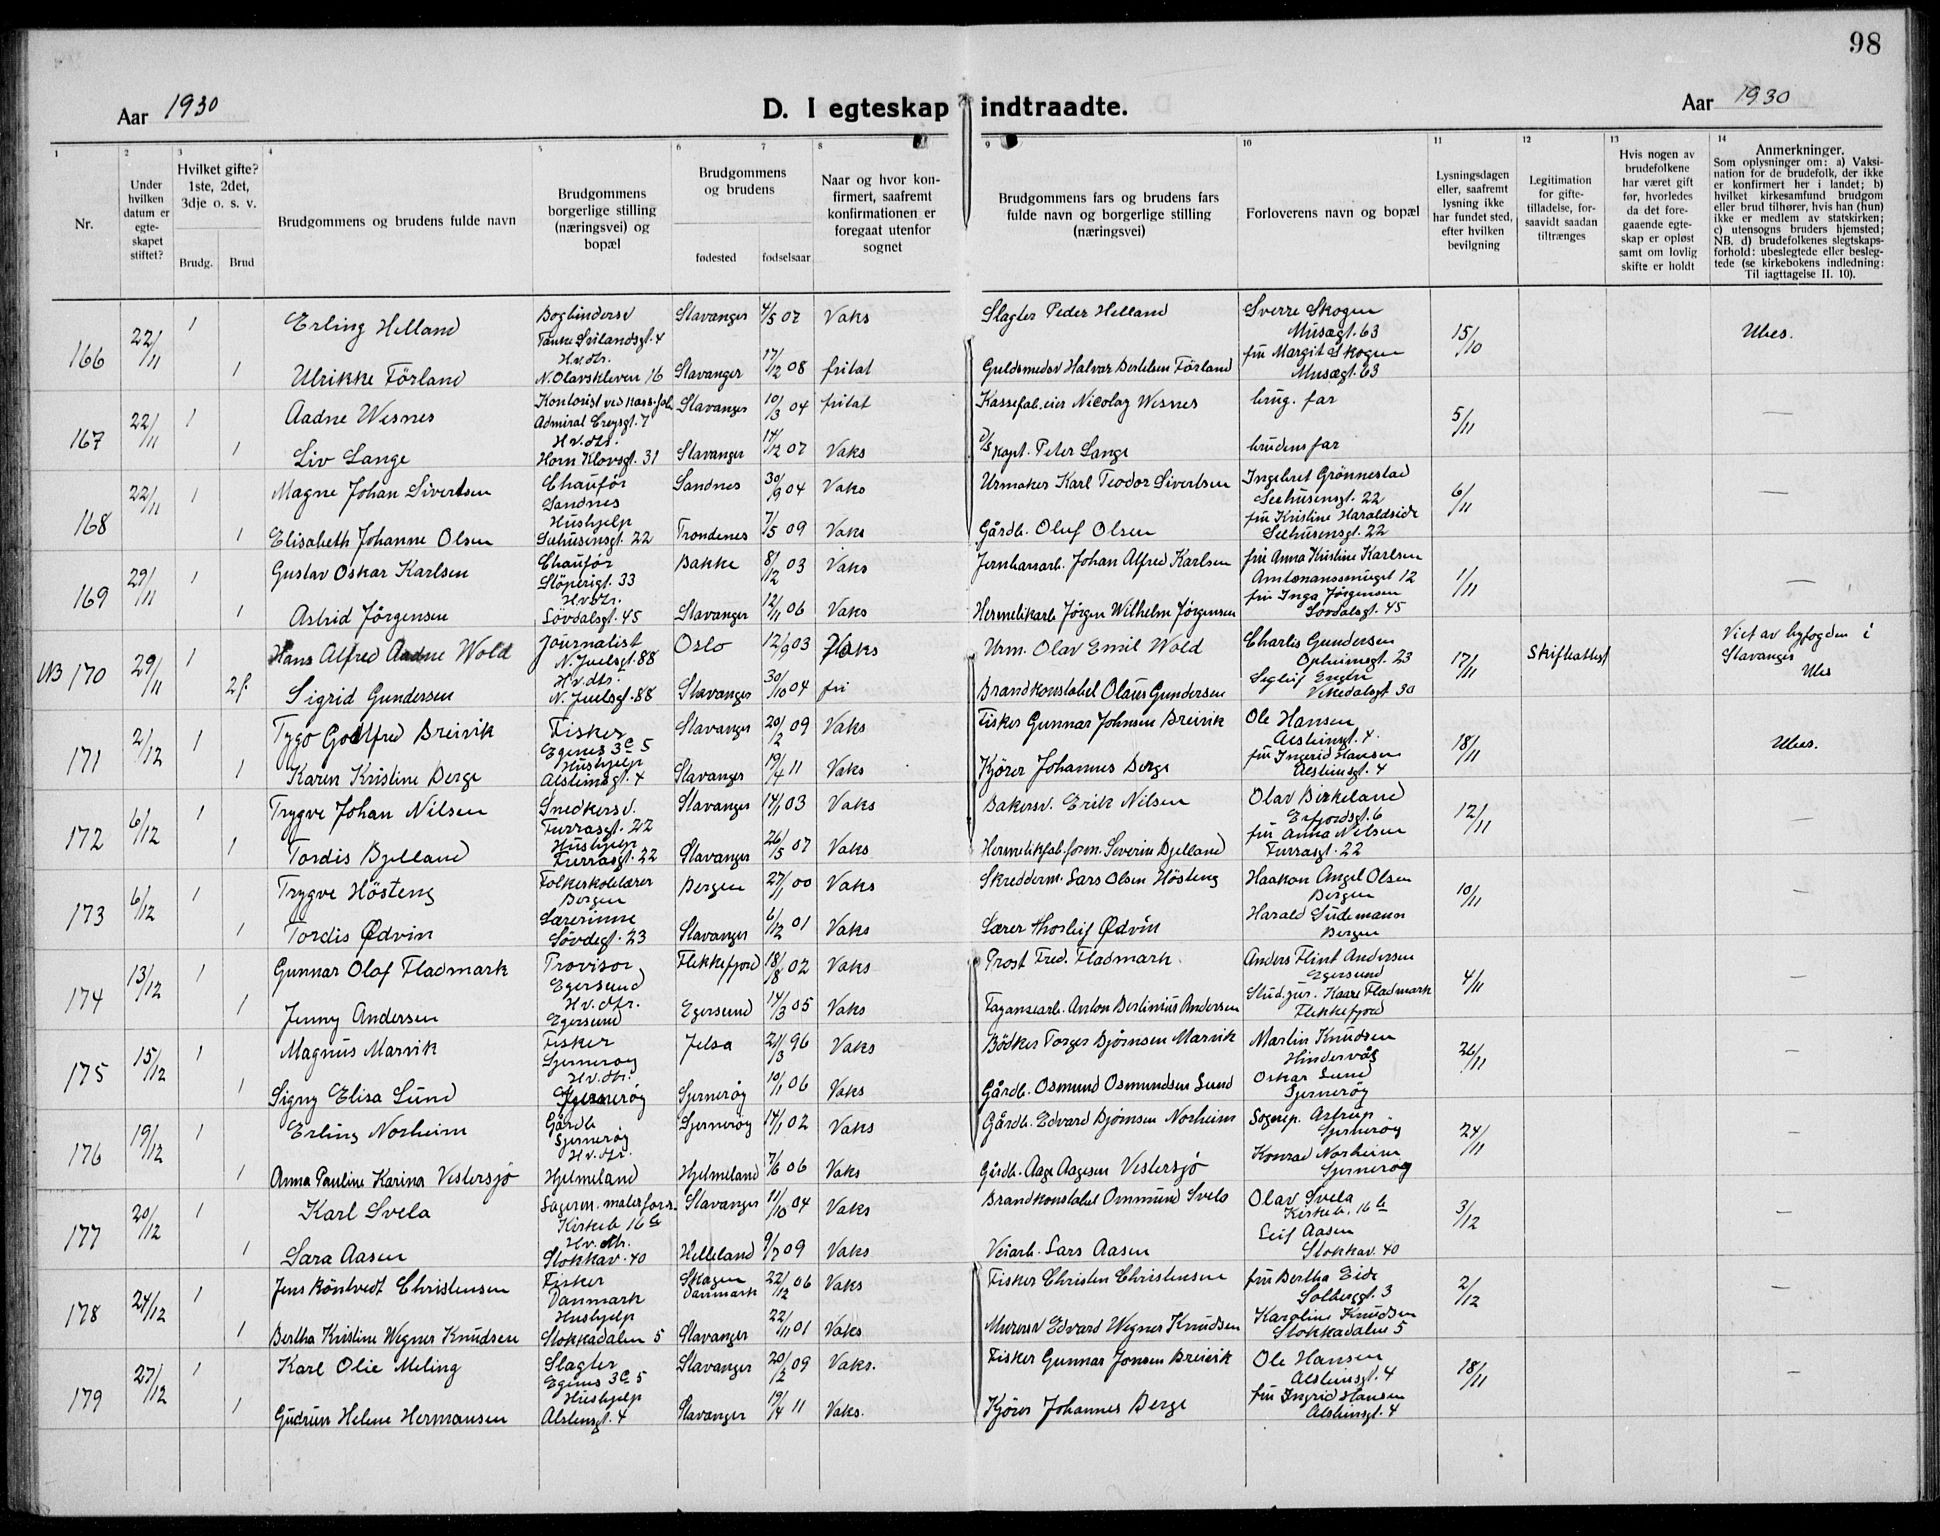 98
Aar 1930
D. I egteskap indtraadte.
Aar 1930
1
2
3
4
5
6
7
8
9
10
11
12
13
14
Nr.
Under hvilken datum er egte-skapet stiftet?
Hvilket gifte? 1ste, 2det, 3dje o. s. v.
Brudg.
Brud
Brudgommens og brudens fulde navn
Brudgommens borgerlige stilling (næringsvei) og bopæl
Brudgommens og brudens
fødested
fødselsaar
Naar og hvor kon-firmert, saafremt konfirmationen er foregaat utenfor sognet
Brudgommens fars og brudens fars fulde navn og borgerlige stilling (næringsvei)
Forloverens navn og bopæl
Lysningsdagen eller, saafremt lysning ikke har fundet sted, efter hvilken bevilgning
Legitimation for gifte-tilladelse, for-saavidt saadan tiltrænges
Hvis nogen av brudefolkene har været gift før, hvorledes da det fore-gaaende egte-skap er opløst samt om lovlig skifte er holdt
Anmerkninger.
Som oplysninger om: a) Vaksi-nation for de brudefolk, der ikke er konfirmert her i landet; b) hvilket kirkesamfund brudgom eller brud tilhører, hvis han (hun) ikke er medlem av statskirken; c) utensogns bruders hjemsted; NB. d) brudefolkenes slegtskaps-forhold: ubeslegtede eller besleg-tede (se kirkebokens indledning: Til iagttagelse II. 10).
166 22/11 1 Erling Helland Bogbindersv Tanke Svilandsgt. 4 Stavanger 4/5 07 Vaks Slagter Peder Helland Sverre Skogen Musægt. 63 15/10 Ubes.
1 Ulrikke Førland H.v.dtr. N. Olavskleven 16 Stavanger 17/12 08 fritat Guldsmedsv Halvar Bertelsen Førland fru Margit Skogen Musægt. 63
167 22/11 1 Aadne Wesnes Kontorist ved kass.fab. Admiral Creysgt. 7 Stavanger 10/3 04 fritat Kassefab.eier Nicolay Wesnes brug. far 5/11 —
1 Liv Lange H.v.dtr. Horn Klovsgt. 31 Stavanger 14/12 07 Vaks D/S kapt. Peter Lange brudens far
168 22/11 1 Magne Johan Sivertsen Chaufør Sandnes Sandnes 30/9 04 Vaks Urmaker Karl Teodor Sivertsen Ingebret Grønnestad Seehusensgt. 22 6/11 —
1 Elisabeth Johanne Olsen Hushjelp Seehusensgt. 22 Trondenes 7/5 09 Vaks Gårdb. Oluf Olsen fru Kristine Haraldseide Seehusensgt. 22
169 29/11 1 Gustav Oskar Karlsen Chaufør Støperigt. 33 Bakke 8/12 03 Vaks Jernbanearb. Johan Alfred Karlsen fru Anna Kristine Karlsen Amtmanssmuget 12 1/11 —
1 Astrid Jørgensen H.v.dtr. Løvdalsgt. 45 Stavanger 12/11 06 Vaks Hermetikarb Jørgen Wilhelm Jørgensen fru Inga Jørgensen Løvdalsgt. 45
NB 170 29/11 1 Hans Alfred Aadne Wold Journalist N. Juelsgt. 88 Oslo 12/9 03 Vaks Urm. Olav Emil Wold Charles Gundersen Opheimsgt. 23 17/11 Skifteattest Viet av byfogden i Stavanger Ubes
2 f. Sigrid Gundersen H.v.dtr. N. Juelsgt. 88 Stavanger 30/10 04 fri Brandkonstabel Olaus Gundersen Vikedalsgt 30
171 2/12 1 Tygo Godtfred Breivik Fisker Egenes 3C 5 Stavanger 20/2 09 Vaks Fisker Gunnar Johnsen Breivik Ole Hansen Alsteinsgt. 4. 18/11 Ubes.
1 Karen Kristine Berge Hushjelp Alsteinsgt. 4 Stavanger 19/4 11 Vaks Kjører Johannes Berge fru Ingerid Hansen Alsteinsgt. 4
172 6/12 1 Trygve Johan Nilsen Snedkersv. Furrasgt. 22 Stavanger 14/1 03 Vaks Bakersv. Erik Nilsen Olav Birkeland Erfjordsgt. 6 12/11 —
1 Tordis Bjelland Hushjelp Furrasgt. 22 Stavanger 26/5 07 Vaks Hermetikfab.form. Severin Bjelland fru Anna Nilsen Furrasgt. 22
173 6/12 1 Trygve Høsteng Folkeskolelærer Bergen Bergen 27/11 00 Vaks Skredderm. Lars Olsen Høsteng Haakon Angel Olsen Bergen 10/11 —
1 Tordis Ødvin Lærerinne Løvdsgt. 23 Stavanger 6/12 01 Vaks Lærer Thorleif Ødvin Harald Sudemann Bergen
174 13/12 1 Gunnar Olaf Fladmark Provisor Egersund Flekkefjord 18/8 02 Vaks Prost Fred. Fladmark. Anders Flint Andersen Egersund 4/11 —
1 Jenny Andersen H.v.dtr. Egersund Egersund 14/3 05 Vaks Fayansearb. Anton Bertinius Andersen Stud.jur. Kaare Fladmark Flekkefjord
175 15/12 1 Magnus Marvik Fisker Sjernerøy Jelsa 21/3 96 Vaks Bødker Torger Bjørnsen Marvik Martin Knudsen Hindervåg 26/11 —
1 Signy Elisa Lund H.v.dtr. Sjernerøy Sjernerøy 10/1 06 Vaks Gårdb. Osmund Osmundsen Lund Oskar Lund Sjernerøy
176 19/12 1 Erling Norheim Gårdb Sjernerøy Sjernerøy 14/1 02 Vaks Gårdb. Edvard Bjørnsen Norheim Sogenp. Astrup Sjernerøy 24/11 —
1 Anna Pauline Karina Vestersjø H.v.dtr. Hjelmeland Hjelmeland 7/6 06 Vaks Gårdb. Aage Aagesen Vestersjø Konrad Norheim Sjernerøy
177 20/12 1 Karl Svela Lagerm. malerforr. Kirkeb 16 b Stavanger 11/10 04 Vaks Brandkonstabel Ommund Svela Olav Svela Kirkeb. 16 b 3/12 —
1 Sara Aasen H.v.dtr. Stokkav. 40 Helleland 9/7 09 Vaks Veiarb. Lars Aasen Leif Aasen Stokkav. 40
178 24/12 1 Jens Røntvedt Christensen Fisker Danmark Skagen Danmark 22/12 06 Vaks Fisker Christen Christensen fru Bertha Eide Solberggt. 3 2/12 —
1 Bertha Kristine Wegner Knudsen Hushjelp Stokkadalen 5 Stavanger 22/11 01 Vaks Murersv Edvard Wegner Knudsen Karoline Knudsen Stokkadalen 5
179 27/12 1 Karl Olie Meling Slagter Egenes 3C 5 Stavanger 20/2 09 Vaks. Fisker Gunnar Jonsen Breivik Ole Hansen Alsteinsgt. 4 18/11 —
1 Gudrun Helene Hermansen Hushjelp Alsteinsgt. 4 Stavanger 19/4 11 Vaks. Kjører Johannes Berge fru Ingrid Hansen Alsteinsgt. 4